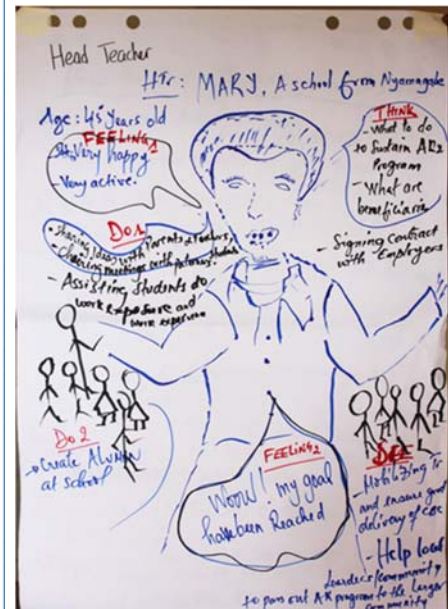 Head Teacher
HTr: MARY, A school from Nyamagabe
Age: 45 years old
FEELING 1
Very happy
- Very active.
THINK
- What to do
to Sustain
Program
- What are
beneficiaries
DO 1
- Sharing ideas with Parents & teachers,
- Chairing meetings with
- Assisting Students do
work exposure and
work experience
- Signing contract
with Employers
DO 2
Create
at school
FEELING 2
Woow! my goal
have been Reached
- Mobilizing
and ensure good
delivery of
- Help local
leaders/community
to pass out program to the larger
community